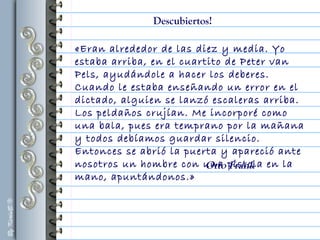 Descubiertos!
«Eran alrededor de las diez y media. Yo
estaba arriba, en el cuartito de Peter van
Pels, ayudándole a hacer los deberes.
Cuando le estaba enseñando un error en el
dictado, alguien se lanzó escaleras arriba.
Los peldaños crujían. Me incorporé como
una bala, pues era temprano por la mañana
y todos debíamos guardar silencio.
Entonces se abrió la puerta y apareció ante
nosotros un hombre con una pistola en la
Otto Frank
mano, apuntándonos.»